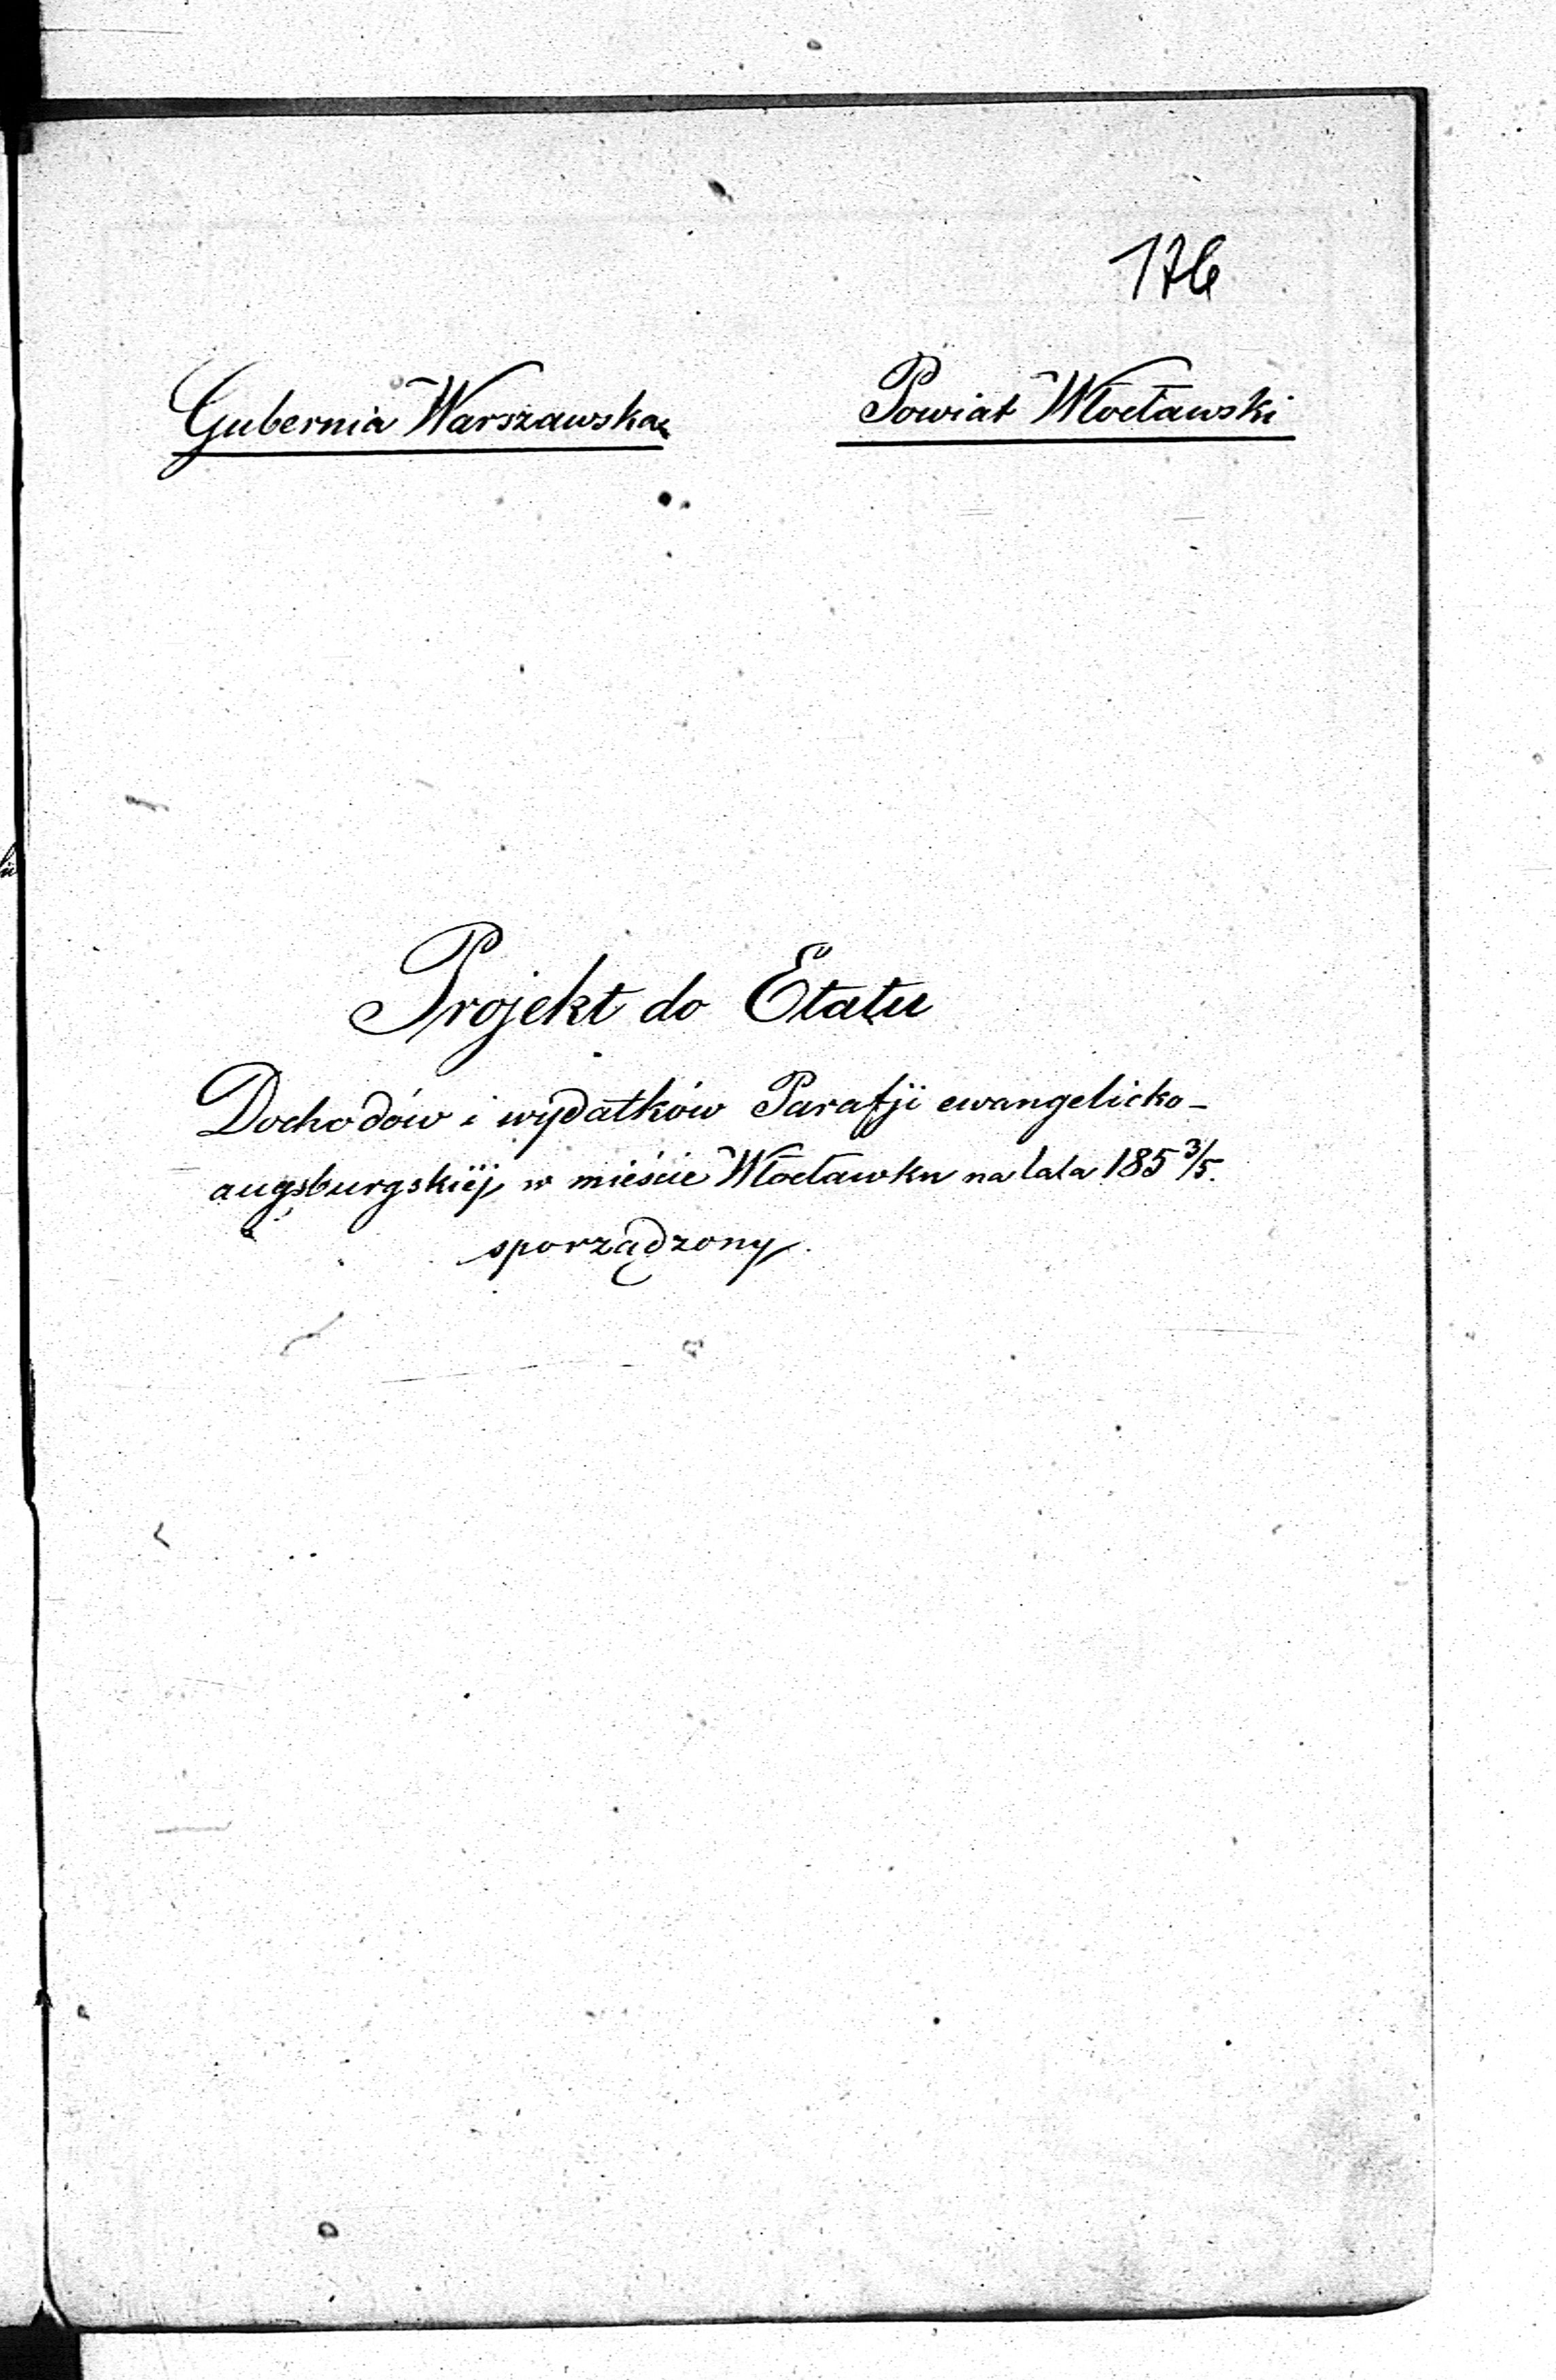 176
Gubernia Warszawska
Powiat Włocławski
Projekt do Etatu
Dochodów i wydatków Parafji ewangelicko-
augsburgskiéj w mieście Włocławku na lata 185 3/5.
sporządzony.